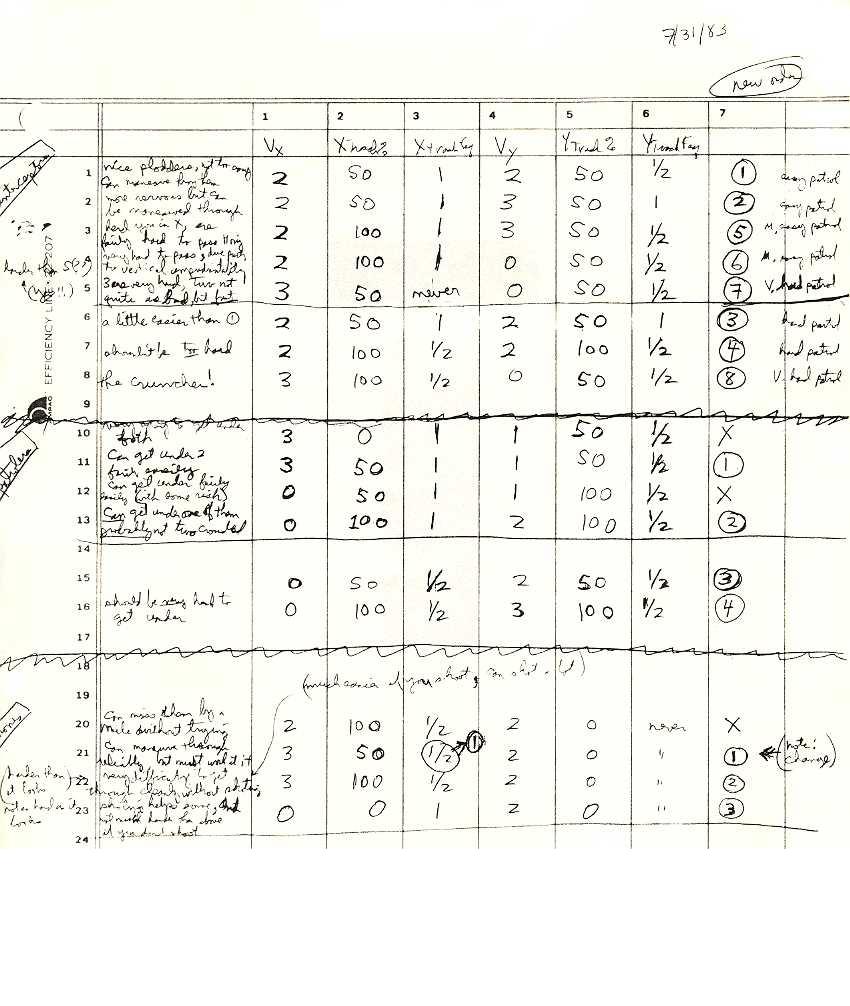 7/31/83
new order
1 2 3 4 5 6 7
Vx X Vy Y
interceptors
1 nice plodders, 2 50 1 2 50 1/2 ① easy patrol
Can
2 more nervous but can 2 50 1 3 50 1 ② easy patrol
be maneuvered through
3 2 100 1 3 50 1/2 ⑤ M. easy patrol
fairly hard to pass
4 very hard to pass 2 100 1 0 50 1/2 ⑥ M. easy patrol
harder than 5(?) the vertical
(yes!!)
5 3 very hard, two not 3 50 never 0 50 1/2 ⑦ V. hard patrol
quite as bad but fast
6 a little easier than ① 2 50 1 2 50 1 ③ hard patrol
7 2 100 1/2 2 100 1/2 ④ hard patrol
8 the cruncher! 3 100 1/2 0 50 1/2 ⑧ V. hard patrol
EFFICIENCY LINE 207
9
10 3 0 1 1 50 1/2 X
11 Can get under 2 3 50 1 1 50 1/2 ①
fairly easily
12 Can get under fairly 0 50 1 1 100 1/2 X
easily (with some risk)
13 Can get under one of them 0 100 1 2 100 1/2 ②
probably not two crowded
14
15 0 50 1/2 2 50 1/2 ③
16 should be very hard to 0 100 1/2 3 100 1/2 ④
get under
17
18
(much easier if you shoot, )
19
20 Can miss them by a 2 100 1/2 2 0 never X
mile without trying
21 Can maneuver through 3 50 1/2 1 2 0 " ① (note: change)
reliably, but must work at it
22 very difficult to get 3 100 1/2 2 0 " ②
(harder than it looks through cleanly without shooting
23 shooting helps some, but 0 0 1 2 0 " ③
not as hard as it looks not much harder than above
if you don't shoot
24